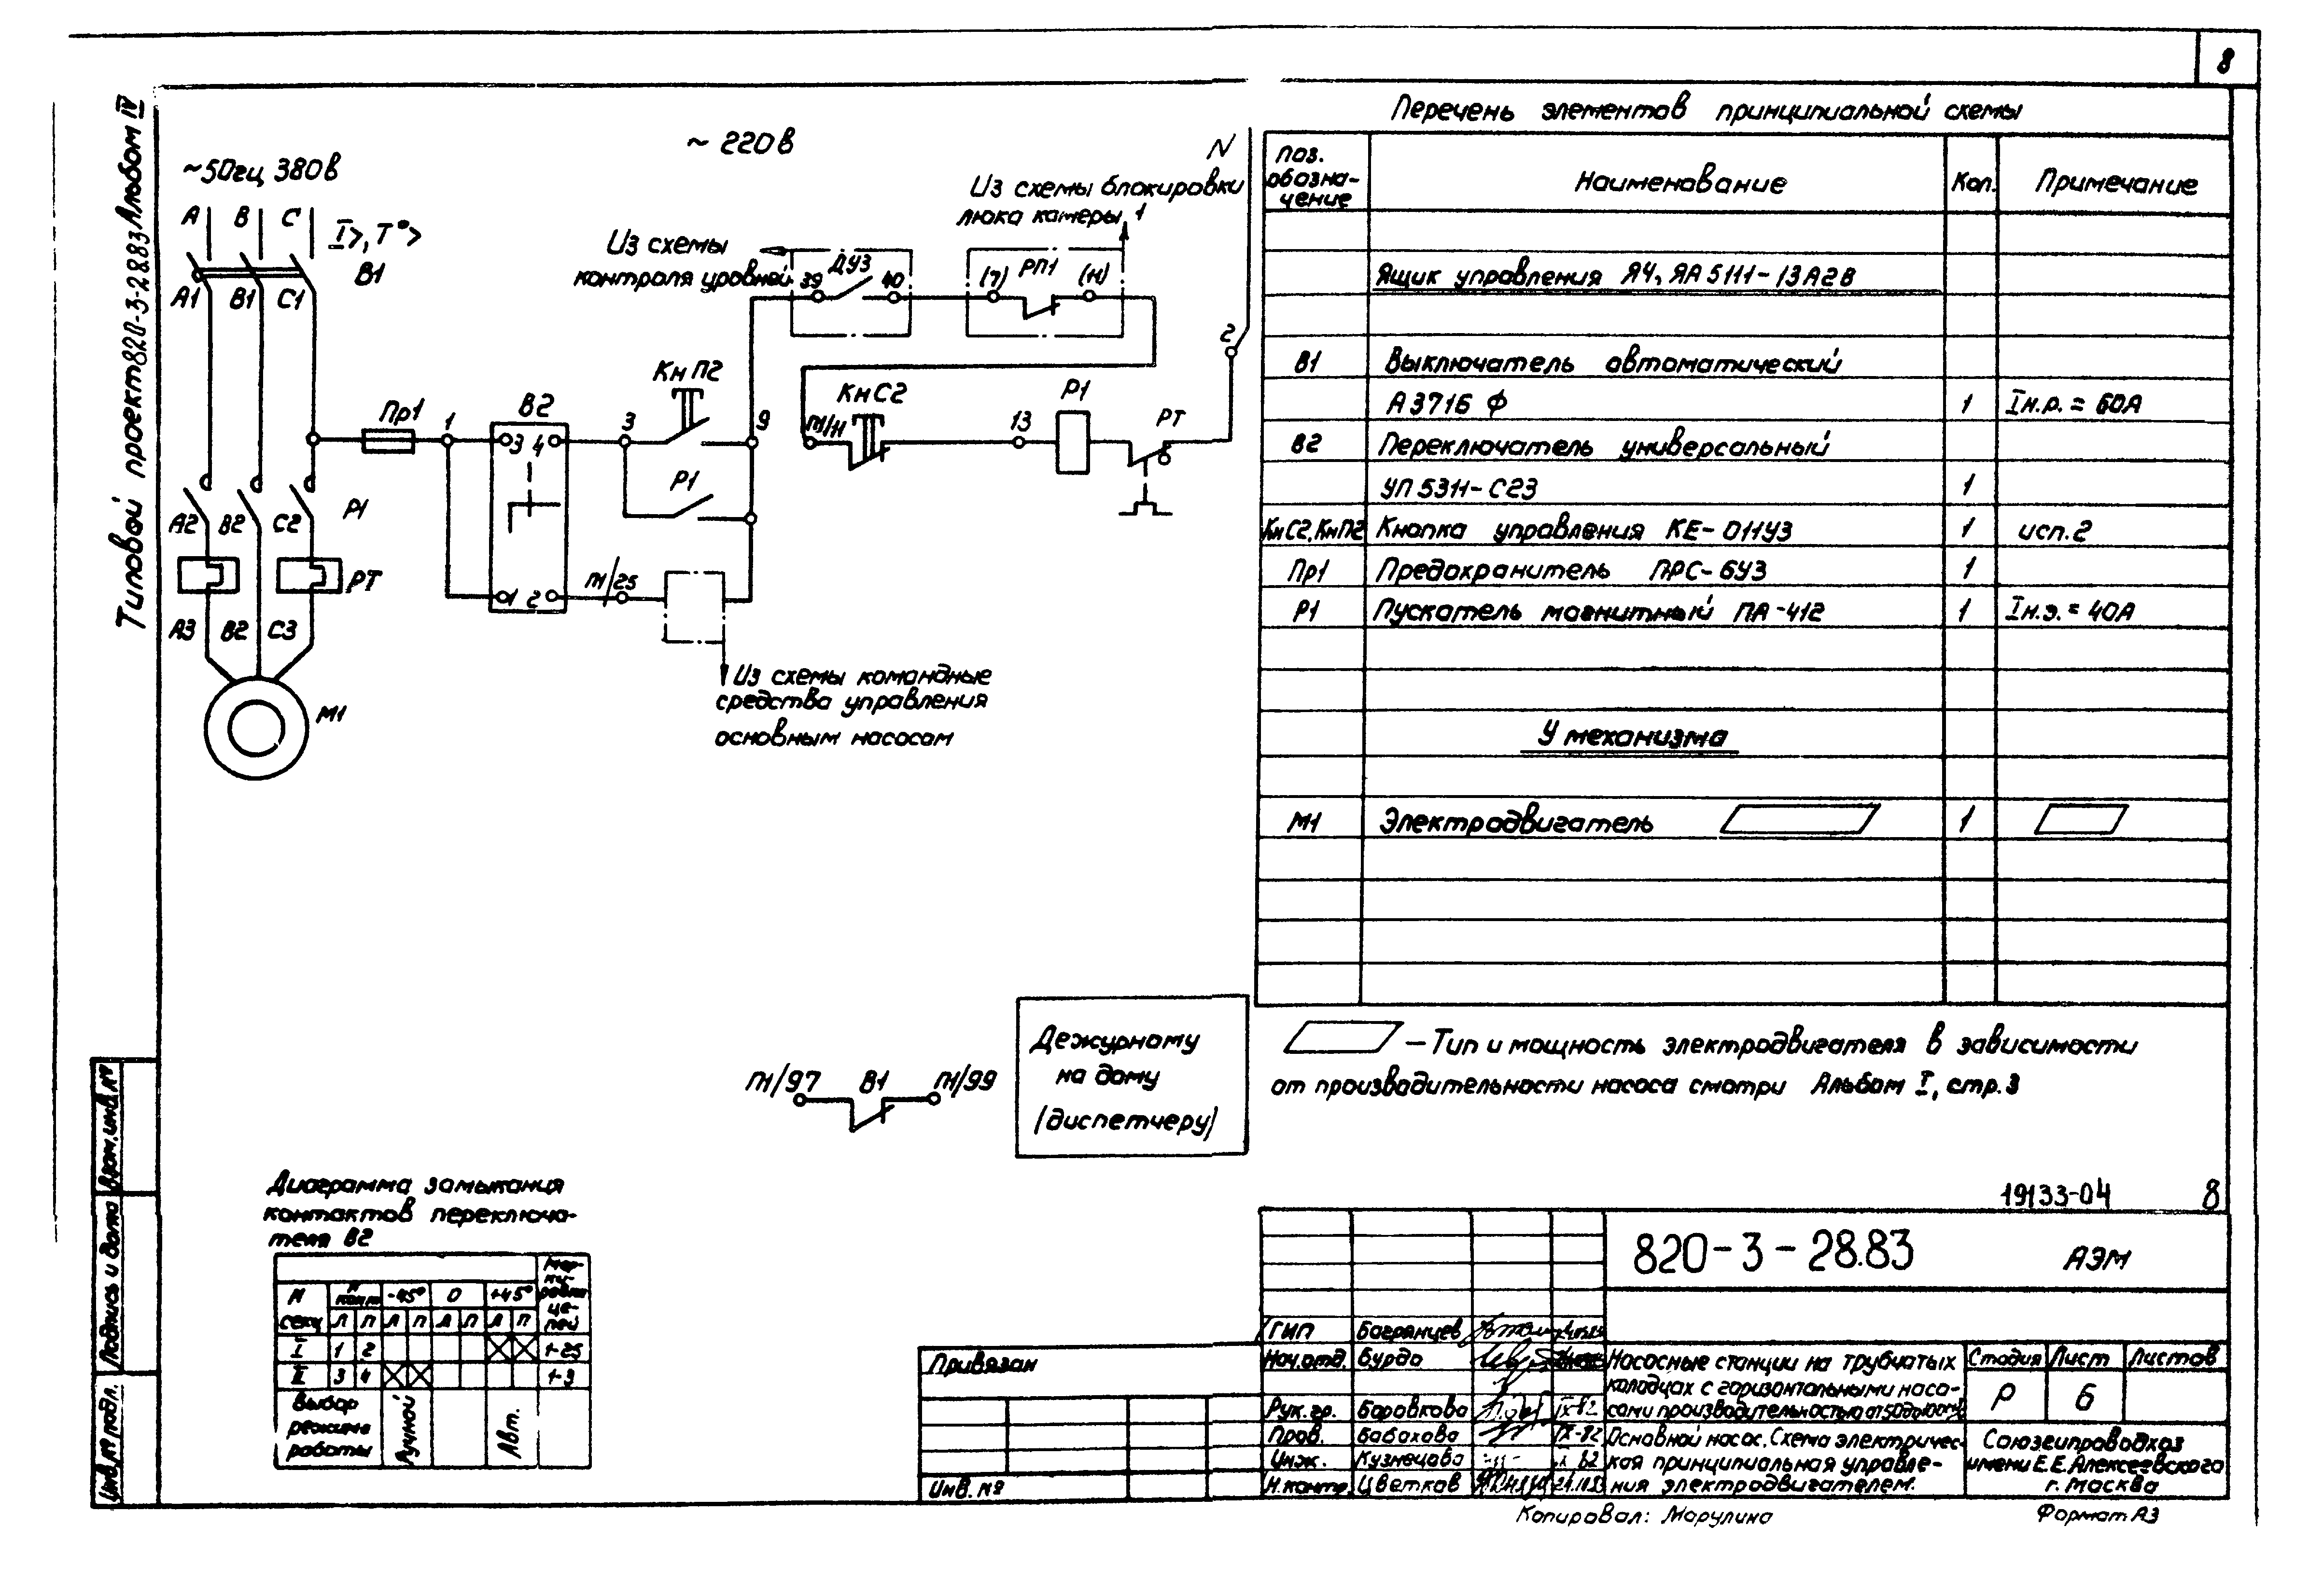 8
Типовой проект 820-3-28.83 Альбом IV
~50гц 380в
А В С
I>, Т°>
В1
А1 В1 С1
~ 220в
N
Из схемы блокировки
люка камеры 1
Из схемы
контроля уровней
39 ДУ3 40
(7) РП1 (Н)
2
КнП2
КнС2
Р1
РТ
Пр1
1
В2
3 4
3
9
П1/Н
13
Р1
А2 В2 С2
Р1
РТ
1 2
П1/25
А3 В2 С3
М1
Из схемы командные
средства управления
основным насосом
Перечень элементов принципиальной схемы
Поз. обозна-чение Наименование Кол. Примечание
Ящик управления ЯЧ, ЯА 5111-13А2В
В1 Выключатель автоматический
А3716 Ф 1 Iн.р. = 60А
В2 Переключатель универсальный
УП 5311-С23 1
КнС2, КнП2 Кнопка управления КЕ-011У3 1 исп. 2
Пр1 Предохранитель ПРС-6У3 1
Р1 Пускатель магнитный ПА-412 1 Iн.э. = 40А
У механизма
М1 Электродвигатель 1
– Тип и мощность электродвигателя в зависимости
от производительности насоса смотри Альбом I, стр. 3
П1/97 В1 П1/99
Дежурному
на дому
(диспетчеру)
Диаграмма замыкания
контактов переключа-
теля В2
N секц N конт -45° 0 +45° Мар-ки-ровка це-пей
Л П Л П Л П Л П
I 1 2 1-25
II 3 4 1-3
Выбор
режима
работы
Ручной
Авт.
19133-04 8
820-3-28.83 АЭМ
ГИП Багрянцев
Нач.отд. Бурда
Рук. гр. Боровкова IX-82
Пров. Бабахова IX-82
Инж. Кузнецова
Н.контр. Цветков
Насосные станции на трубчатых
колодцах с горизонтальными насо-
сами производительностью от 50 до 100
Основной насос. Схема электричес-
кая принципиальная управле-
ния электродвигателем.
Стадия Лист Листов
Р 6
Союзгипроводхоз
имени Е.Е. Алексеевского
г. Москва
Привязан
Инв. №
Инв. № подл. Подпись и дата Взам. инв. №
Копировал: Марулина
Формат А3